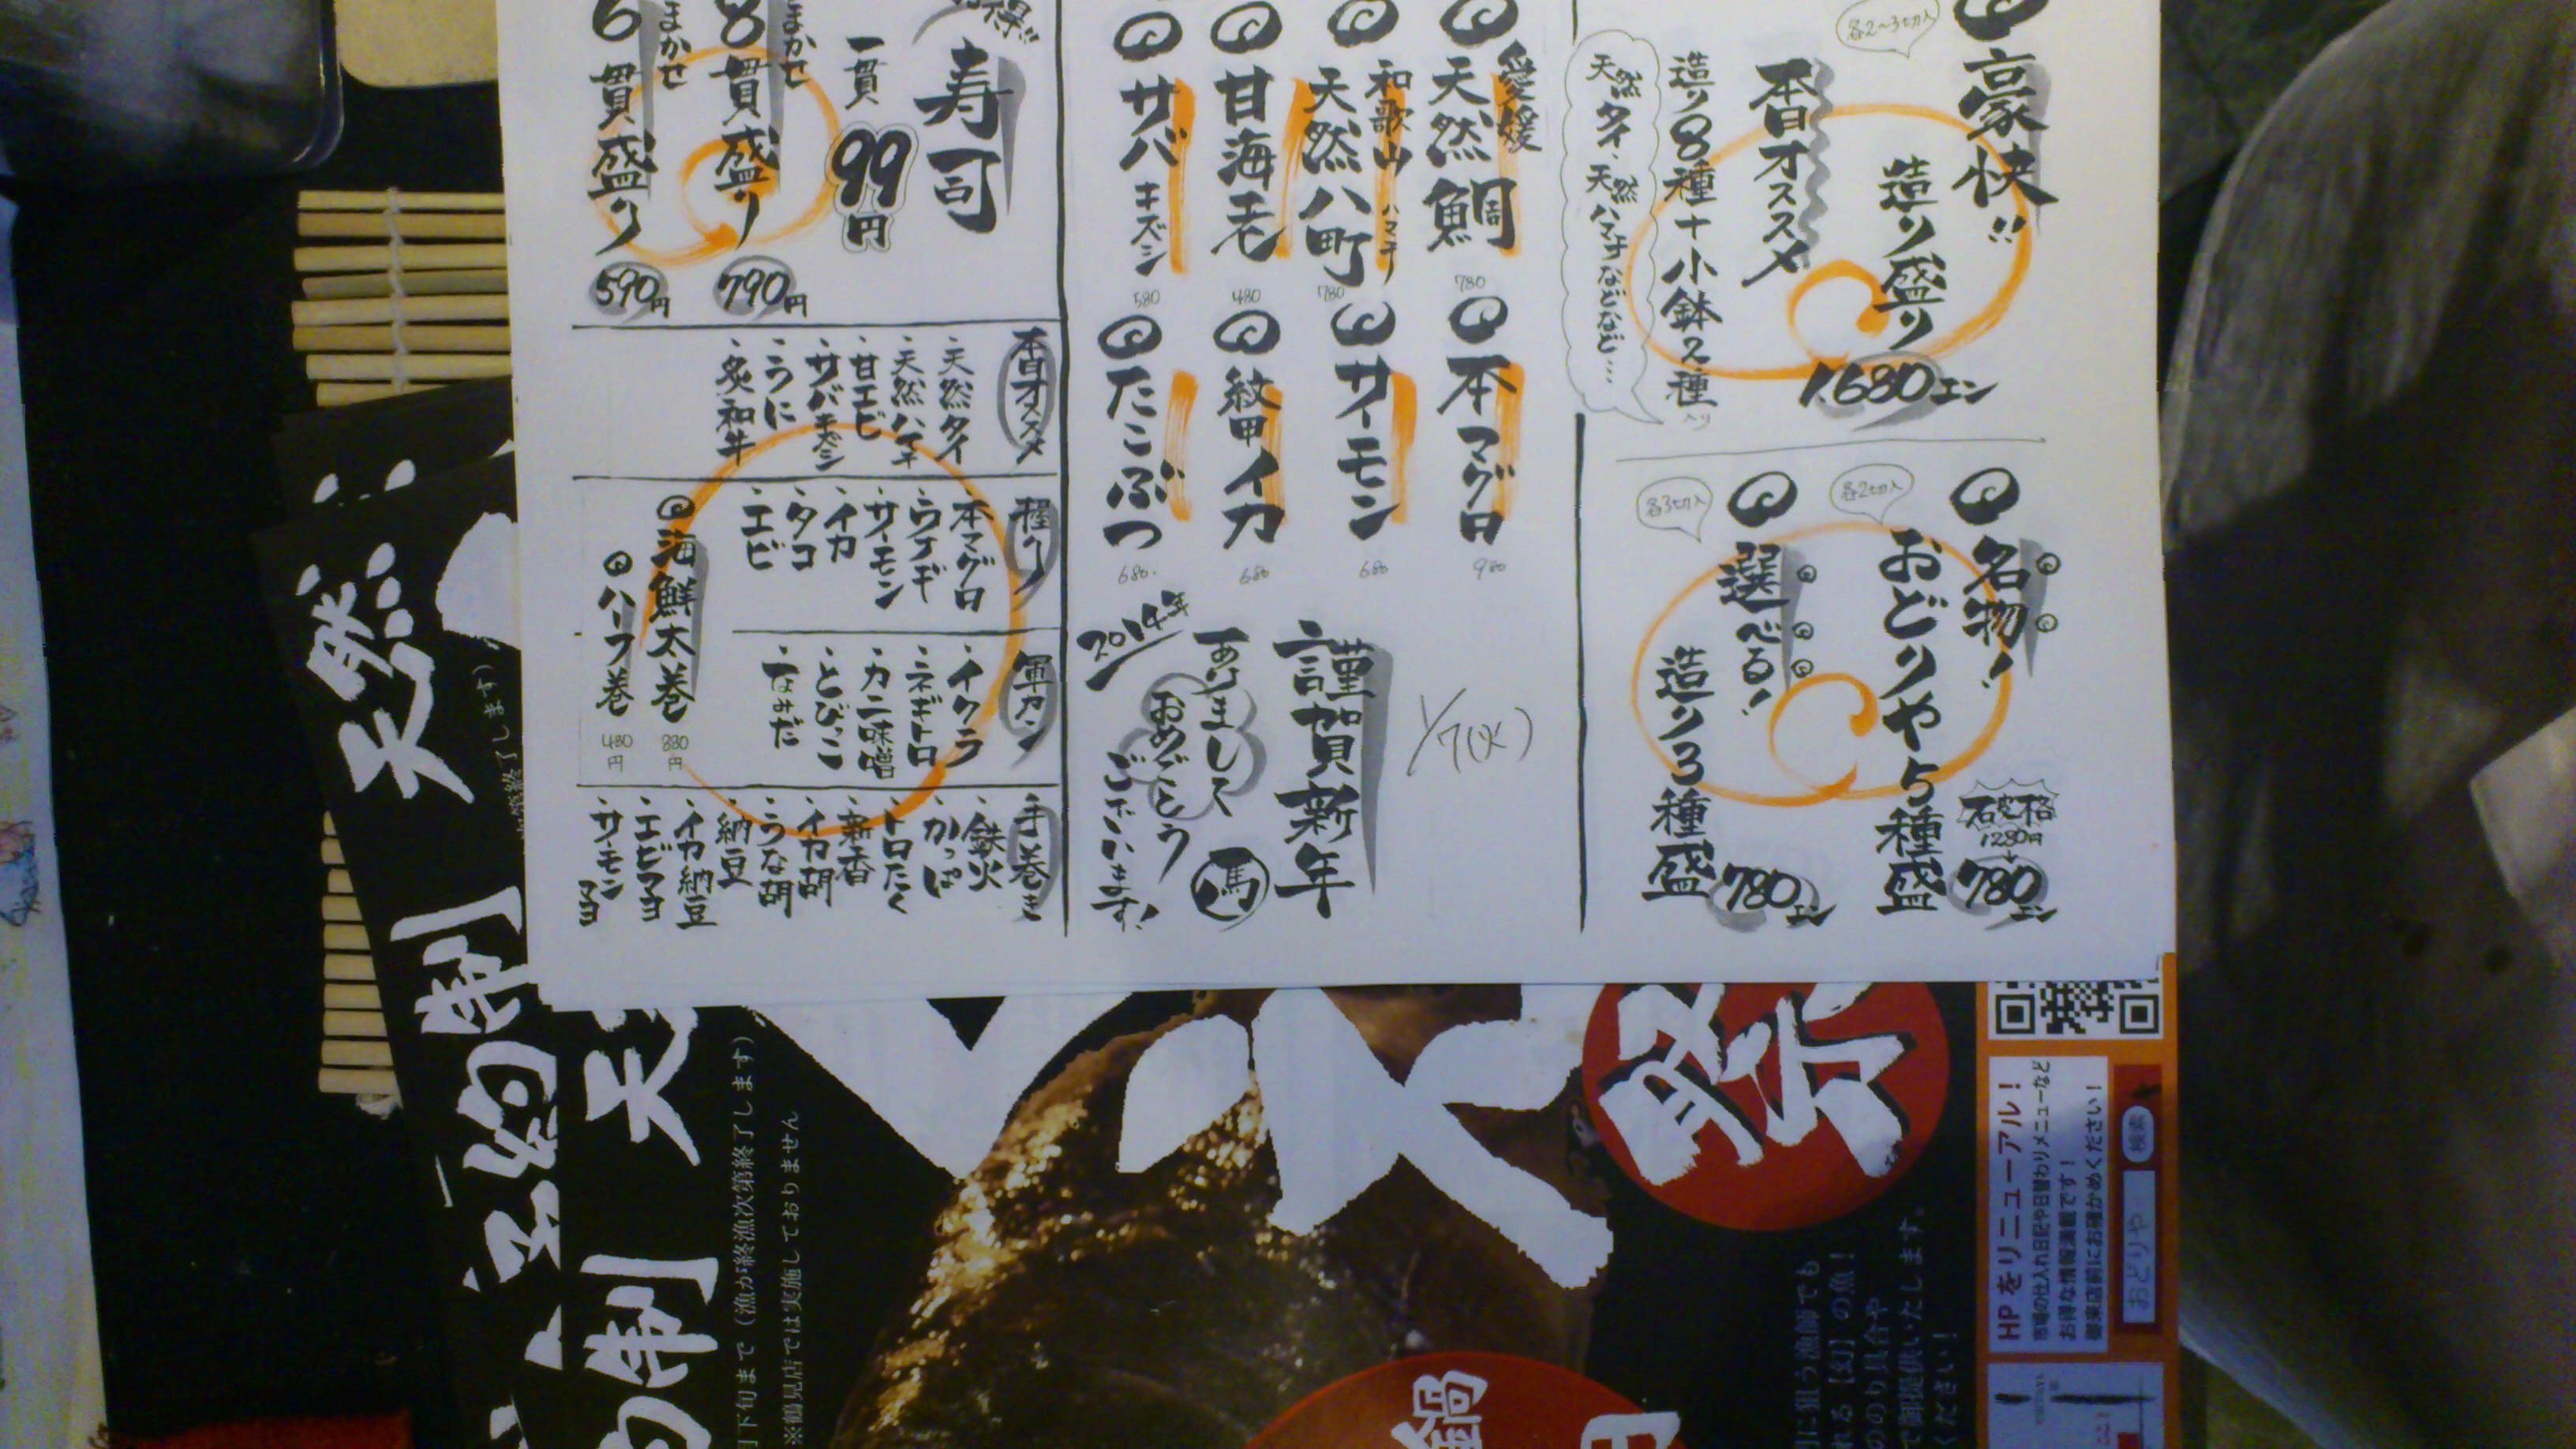 豪快!!
造り盛り
1.680エン
各2〜3切入
本日オススメ
造り8種+小鉢2種入り
天然タイ、天然ハマチなどなど…
名物!
おどりや5種盛
各2切入
1280円
780エン
選べる!
造り3種盛
各3切入
780エン
愛媛
天然鯛
780
和歌山
ハマチ
天然八町
780
甘海老
480
サバキズシ
580
本マグロ
980
サーモン
680
紋甲イカ
680
たこぶつ
680.
1/7(火)
謹賀新年
馬
あけまして
おめでとう
ございます!
2014年
寿司
一貫
99円
まかせ
8貫盛り
790円
まかせ
6貫盛り
590円
本日オススメ
・天然タイ
・天然ハマチ
・甘エビ
・サバキズシ
・うに
・炙和牛
握り
・本マグロ
・ウナギ
・サーモン
・イカ
・タコ
・エビ
軍カン
・イクラ
・ネギトロ
・カニ味噌
・とびこ
手巻き
・鉄火
・かっぱ
・トロたく
・新香
・イカ胡
・うな胡
・納豆
・イカ納豆
・エビマヨ
・サーモンマヨ
海鮮太巻
880円
ハーフ巻
480円
HPをリニューアル!
市場の仕入れ日記や日替わりメニューなど
お得な情報満載です!
御来店前にお確かめください!
おどりや
検索
祭
に狙う漁師でも
れる【幻】の魚!
ののり具合や
で御提供いたします。
ください!
鍋
天然
制
予約制
天
月下旬まで(漁が終漁次第終了します)
※鶴見店では実施しておりません